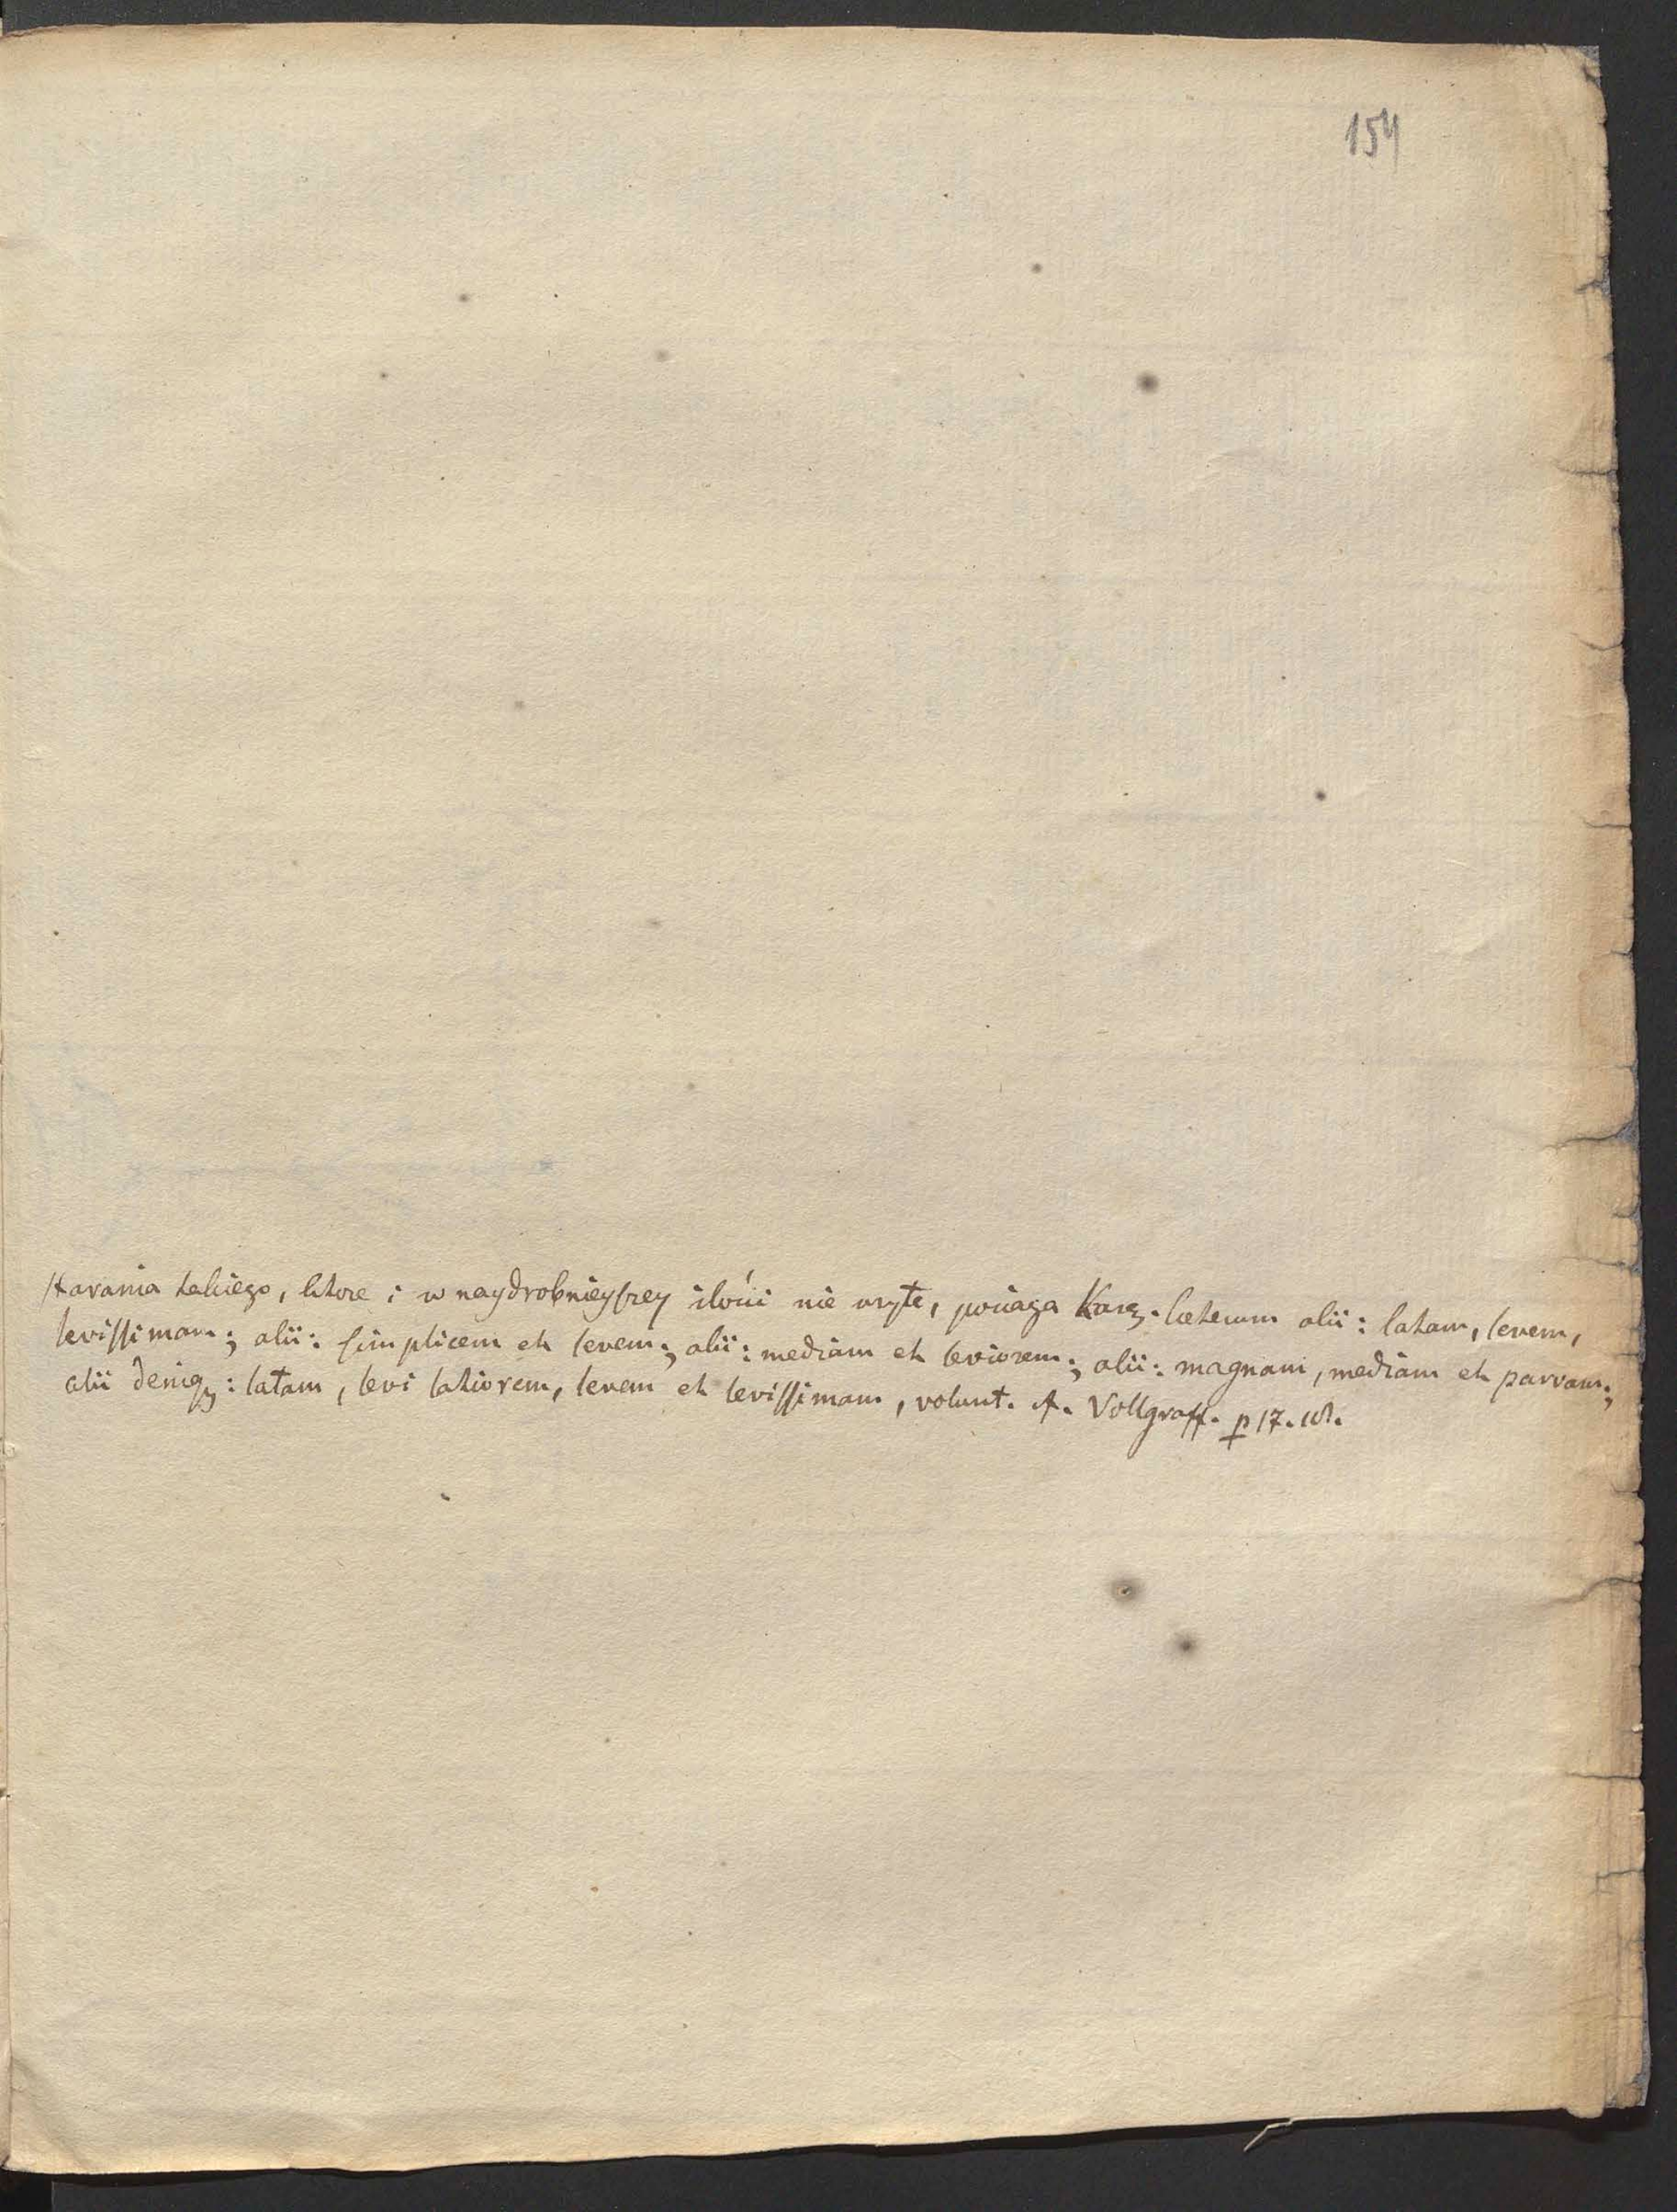 154
starania takiego, ktore i w naydrobnieyszey ilości nie użyte, pociąga Karę. Ceterum alii: latam, levem,
levissimam; alii: simplicem et levem; alii: mediam et leviorem; alii: magnam, mediam et parvam;
alii deniq;: latam, levi latiorem, levem et levissimam, volunt. A. Vollgraff. p 17.